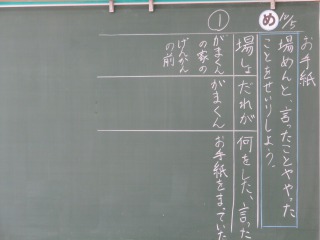 10/5
お手紙
め
場めんと、言ったことややった
ことをせいりしよう。
場しょ
だれが
何をした、言った
①
がまくん
の家の
げんかん
の前
がまくん
お手紙をまっていた